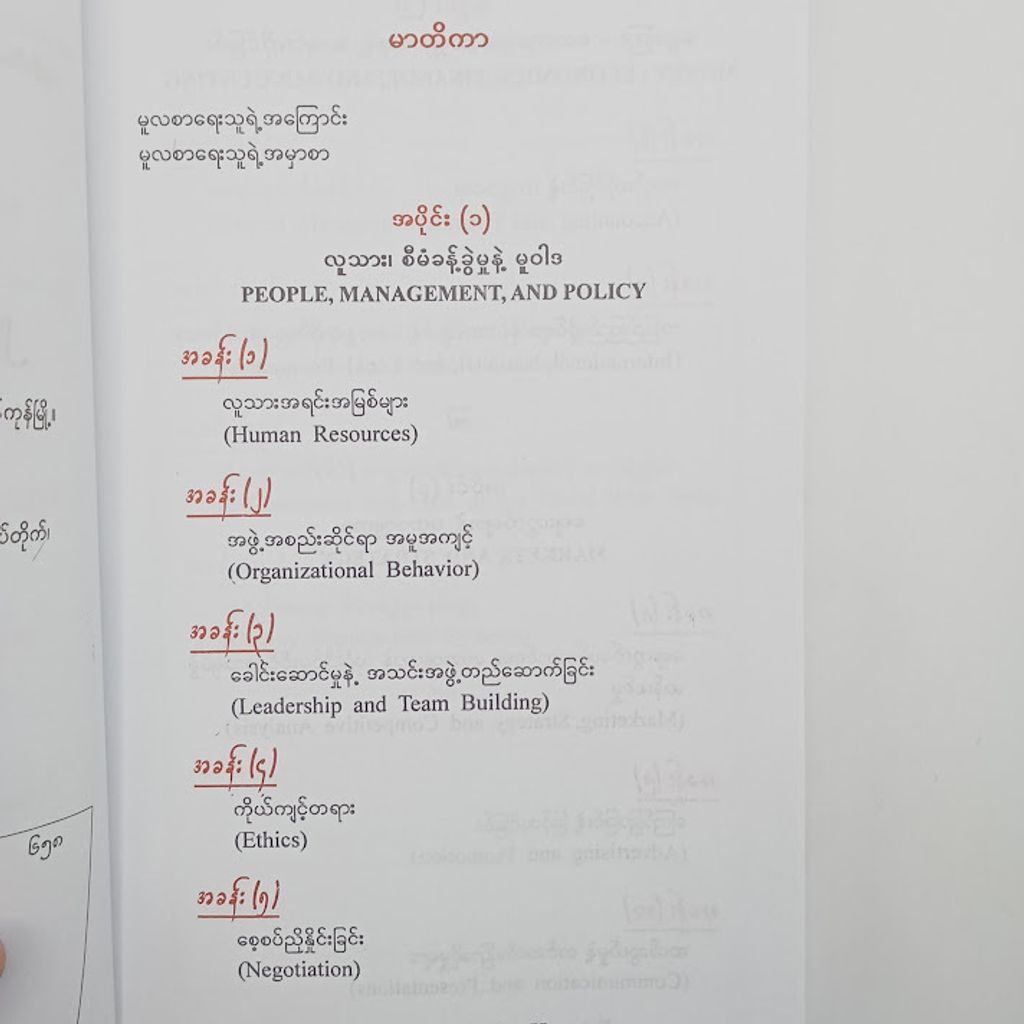 မာတိကာ
မူလစာရေးသူရဲ့အကြောင်း
မူလစာရေးသူရဲ့အမှာစာ
အပိုင်း (၁)
လူသား၊ စီမံခန့်ခွဲမှုနဲ့ မူဝါဒ
PEOPLE, MANAGEMENT, AND POLICY
အခန်း (၁)
လူသားအရင်းအမြစ်များ
(Human Resources)
အခန်း (၂)
အဖွဲ့အစည်းဆိုင်ရာ အမူအကျင့်
(Organizational Behavior)
အခန်း (၃)
ခေါင်းဆောင်မှုနဲ့ အသင်းအဖွဲ့တည်ဆောက်ခြင်း
(Leadership and Team Building)
အခန်း (၄)
ကိုယ်ကျင့်တရား
(Ethics)
အခန်း (၅)
စေ့စပ်ညှိနှိုင်းခြင်း
(Negotiation)
ကုန်မြို့။
တိုက်၊
၆၅၈